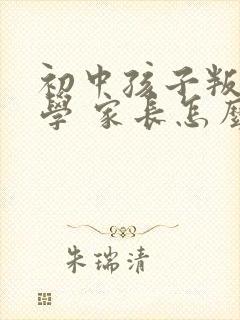 初中孩子叛
學 家長怎
朱瑞清